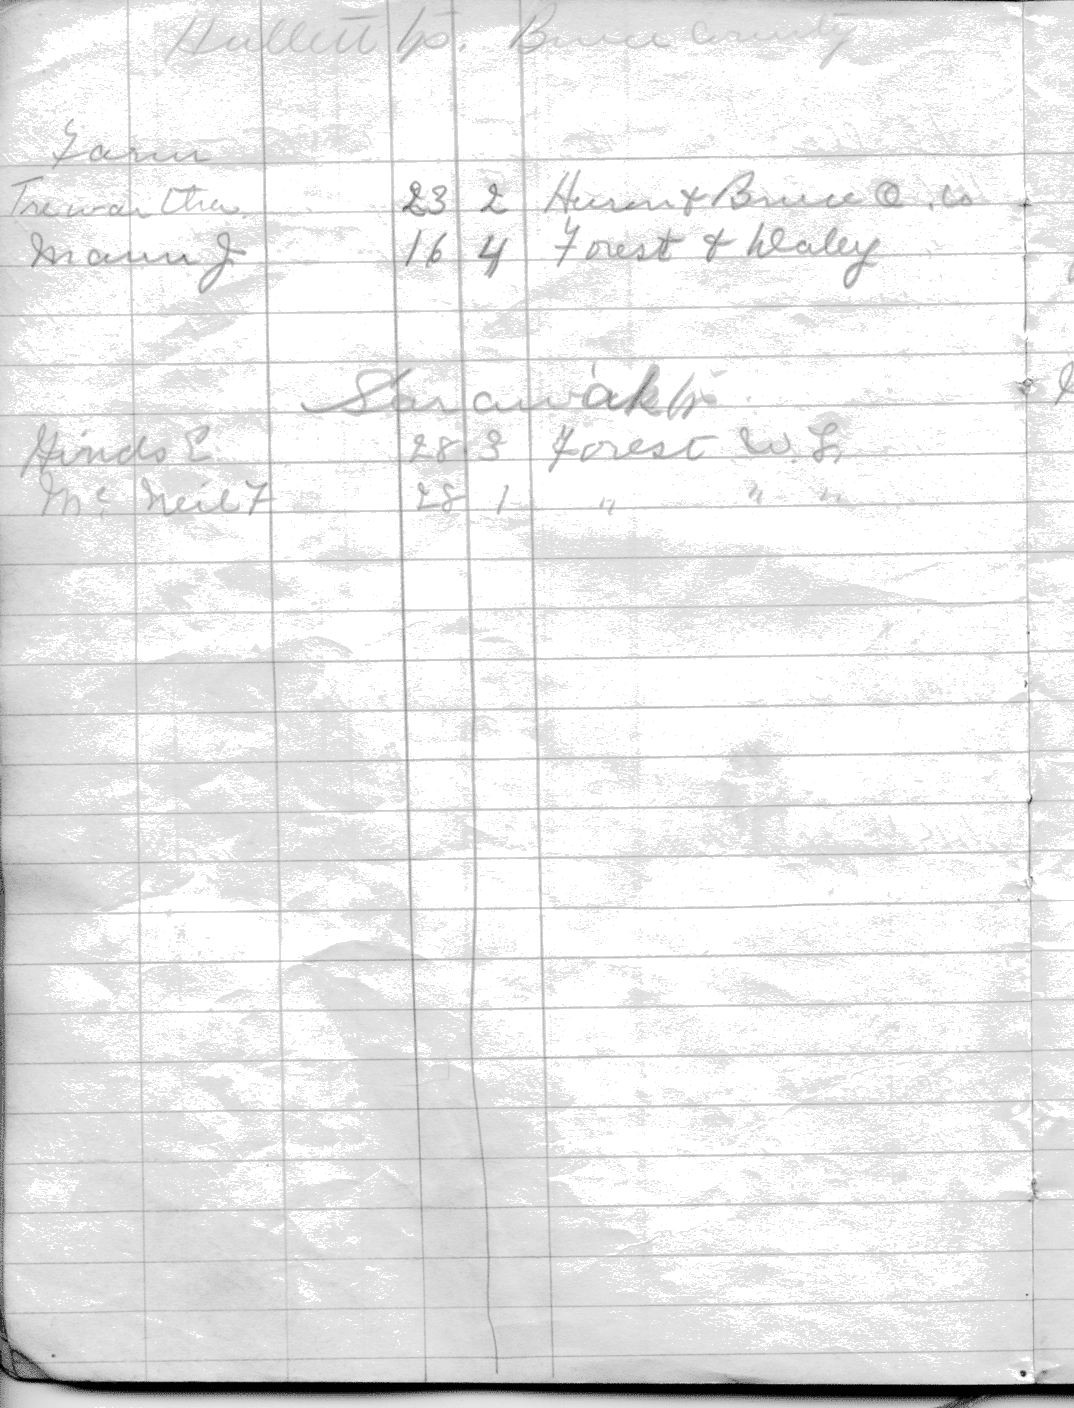 Hullett tp. Bruce County
Farm
Trewartha 23 2 Huron & Bruce O. Co
Mann J 16 4 Forest & Daley
Sarawak tp.
Hinds E 28 3 Forest W. L.
Mc Neil F 28 1 " " "